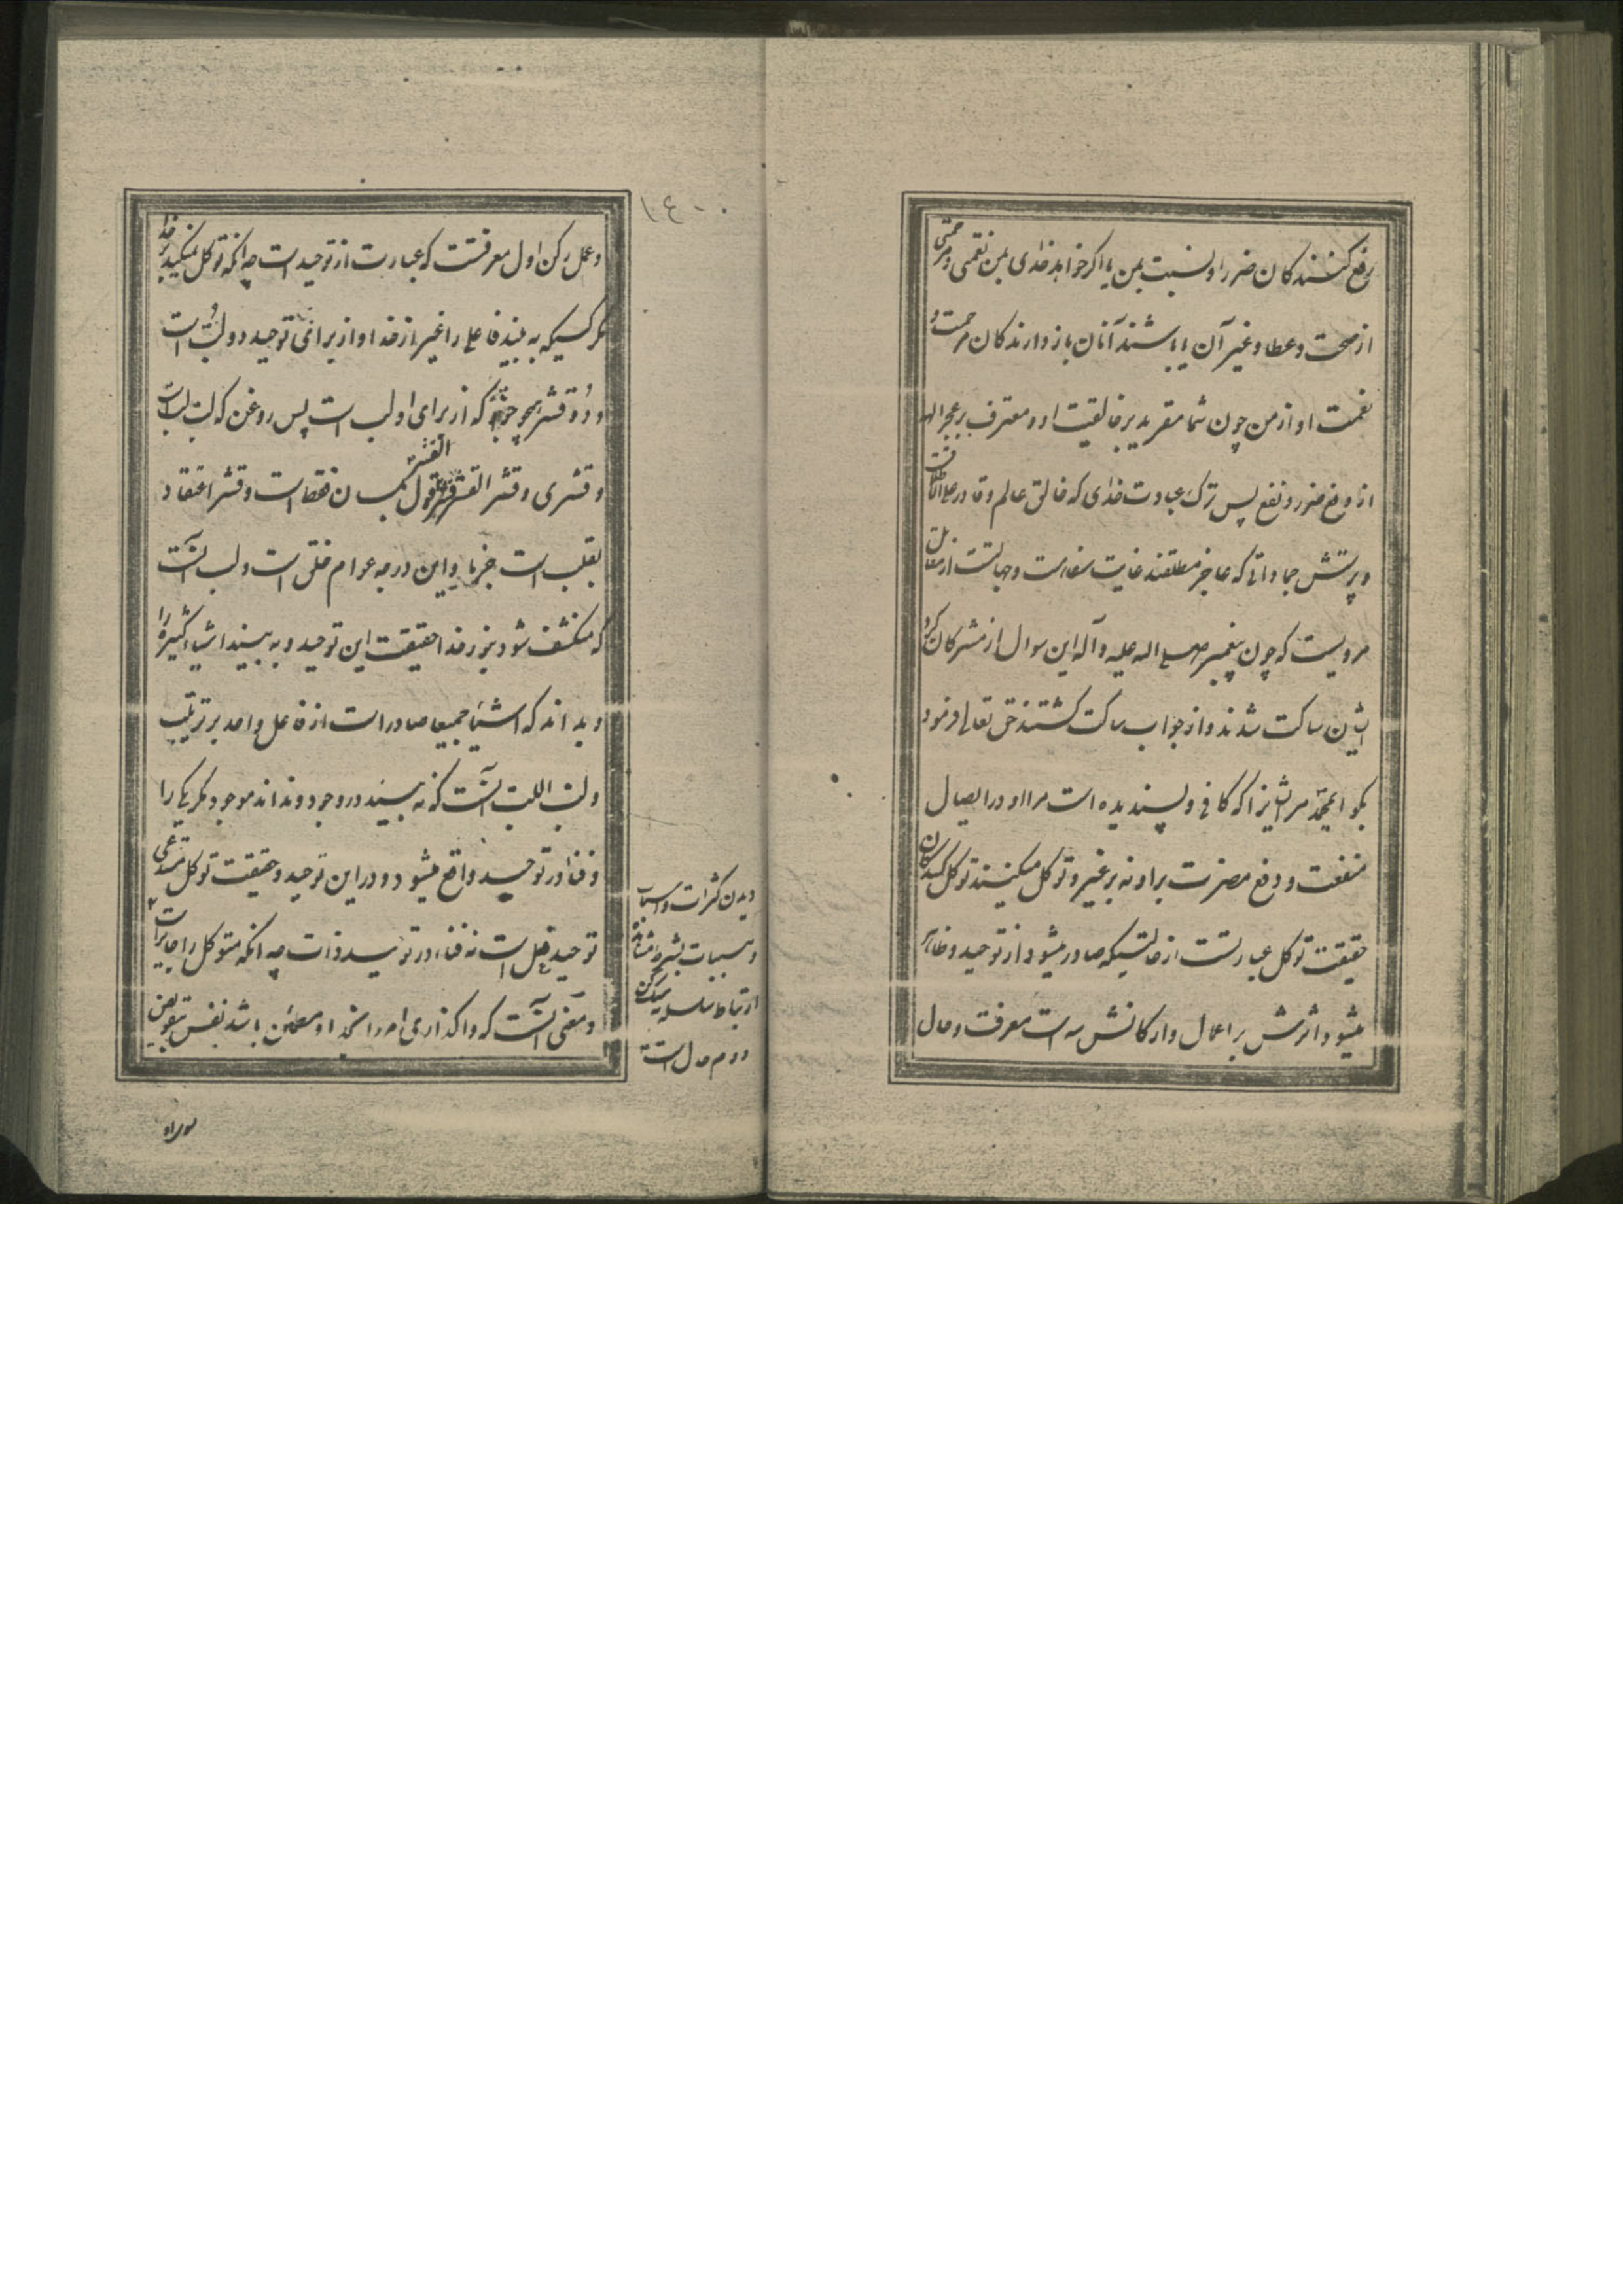 رفع کنندکان ضرر او نسبت بمن یا اکر خواهد خدای بمن نعمتی و مرحمتی
از صحت و عطا و غیر آن ایا باشند آنان باز دارندکان مرحمت و
نعمت او از من چون شما مقرید بر خالقیت او و معترف بر عجز الهه
از دفع ضرر و نفع پس ترک عبادت خدای که خالق عالم و قادر علی الاطلاقست
و پرستش جماداتی که عاجز مطلقند غایت سفاهت و جهالتست از مقاتل
مرویست که چون پیغمبر صلی اله علیه و آله این سوال از مشرکان کرد
ایشان ساکت شدند و از جواب ساکت کشتند حق تعالی فرمود
بکو ایمحمد مر ایشانرا که کافی و پسندیده است مرا او در ایصال
منفعت و دفع مضرت بر او نه بر غیر و توکل میکنند توکل کنندکان
حقیقت توکل عبارتست از حالتیکه صادر میشود از توحید و ظاهر
میشود اثرش بر اعمال و ارکانش سه است معرفت و حال
١٤٠٠
و عمل رکن اول معرفتست که عبارت از توحید است چه انکه توکل نمیکند بر خدا
مکر کسیکه به بیند فاعلی را غیر از خدا و از برای توحید دو لب است
و دو قشر همچو جوز که از برای او لب است پس روغن که لب لب است
و قشری و قشر القشر قشر القشر قول بلسان فقط است و قشر اعتقاد
بقلب است جزما و این درجه عوام خلق است و لب آنست
که منکشف شود بنور خدا حقیقت این توحید و به بیند اشیاء کثیره را
و بداند که اشیا جمیعا صادر است از فاعل واحد بر ترتیب
و لب اللب آنست که نه بیند در وجود و نداند موجود مکر یکی را
و فنا در توحید واقع میشود و در این توحید و حقیقت توکل مستدعی
توحید فعل است نه فناء در توحید ذات چه انکه متوکل را جایز است
و معنی آنست که واکذاری امر را بخدا و مطمئن باشد نفس بتفویض
دیدن کثرات و اسباب
و مسببات بشرط مشاهده
ارتباط سلسله رکن
دوم حال است